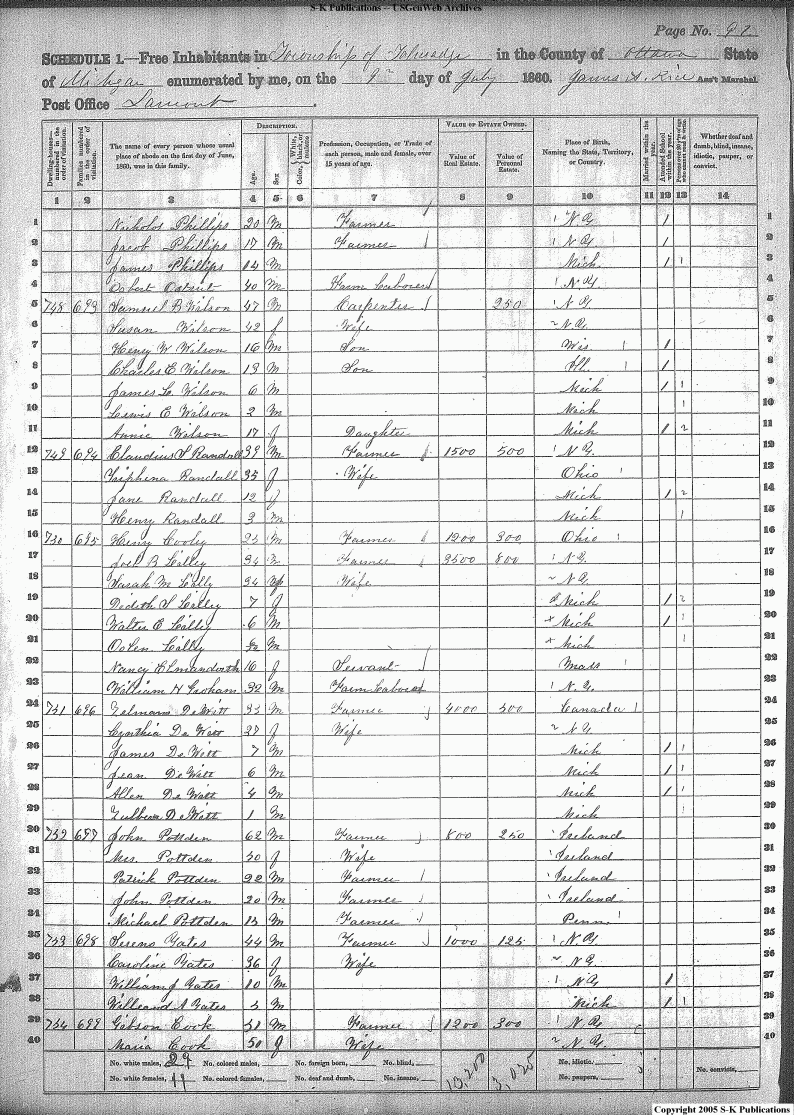 S-K Publications -- USGenWeb Archives
Page No. 92
SCHEDULE 1.—Free Inhabitants in Township of in the County of Ottawa State
of Michigan enumerated by me, on the day of July 1860. James Rice Ass't Marshal
Post Office Lamont.
Dwelling-houses—numbered in the order of visitation. Families numbered in the order of visitation. The name of every person whose usual place of abode on the first day of June, 1860, was in this family. DESCRIPTION. Age. Sex. Color, White, black, or mulatto. Profession, Occupation, or Trade of each person, male and female, over 15 years of age. VALUE OF ESTATE OWNED. Value of Real Estate. Value of Personal Estate. Place of Birth, Naming the State, Territory, or Country. Married within the year. Attended School within the year. Whether deaf and dumb, blind, insane, idiotic, pauper, or convict.
1 2 3 4 5 6 7 8 9 10 11 12 13 14
1 Nicholos Phillips 20 M Farmer N.Y. 1 1
2 Jacob Phillips 17 M Farmer N.Y. 1 2
3 James Phillips 14 M Mich 1 1 3
4 40 M Farm Laborer N.Y. 4
5 748 693 Samuel B Wilson 47 M Carpenter 250 N.Y. 5
6 Susan Wilson 42 f Wife N.Y. 6
7 Henry W Wilson 16 M Son Wis. 1 7
8 Charles E Wilson 13 M Son Ill. 1 8
9 James L. Wilson 6 M Mich 1 1 9
10 Lewis E Wilson 2 M Mich 1 10
11 Annie Wilson 17 f Daughter Mich 1 2 11
12 749 694 Claudius S Randall 39 M Farmer 1500 500 N.Y. 12
13 Triphena Randall 35 f Wife Ohio 13
14 Jane Randall 12 f Mich 1 2 14
15 Henry Randall 3 M Mich 1 15
16 730 695 Henry Cooly 25 M Farmer 1200 300 Ohio 16
17 Joel B Lilley 34 M Farmer 3500 800 N.Y. 17
18 Sarah M Lilley 34 f Wife N.Y. 18
19 Lilley 7 f Mich 1 2 19
20 Walter E Lilley 6 M Mich 1 1 20
21 Lilley M Mich 1 21
22 Nancy 16 f Servant Mass 22
23 William H Groham 32 M Farm Laborer N.Y. 23
24 731 696 DeWitt 33 M Farmer 4000 500 Canada 24
25 Cynthia De Witt 27 f Wife N.Y. 25
26 James De Witt 7 M Mich 1 1 26
27 Jean De Witt 6 M Mich 1 1 27
28 Allen De Witt 4 M Mich 1 1 28
29 De Witt 1 M Mich 1 29
30 732 697 John Pottden 62 M Farmer 800 250 Ireland 30
31 Mrs. Pottden 50 f Wife Ireland 31
32 Patrick Pottden 22 M Farmer Ireland 32
33 John Pottden 20 M Farmer Ireland 33
34 Michael Pottden 15 M Farmer Penn 34
35 733 698 Sereno Yates 44 M Farmer 1000 125 N.Y. 35
36 Caroline Yates 36 f Wife N.Y. 36
37 William J Yates 10 M N.Y. 1 37
38 Willeard A Yates 5 M Mich 1 1 38
39 734 699 Gibson Cook 51 M Farmer 1200 300 N.Y. 39
40 Maria Cook 50 f Wife N.Y. 40
No. white males, 29 No. colored males, No. foreign born, No. blind, 13,200 3,025 No. idiotic, No. convicts,
No. white females, 11 No. colored females, No. deaf and dumb, No. insane, No. paupers,
Copyright 2005 S-K Publications